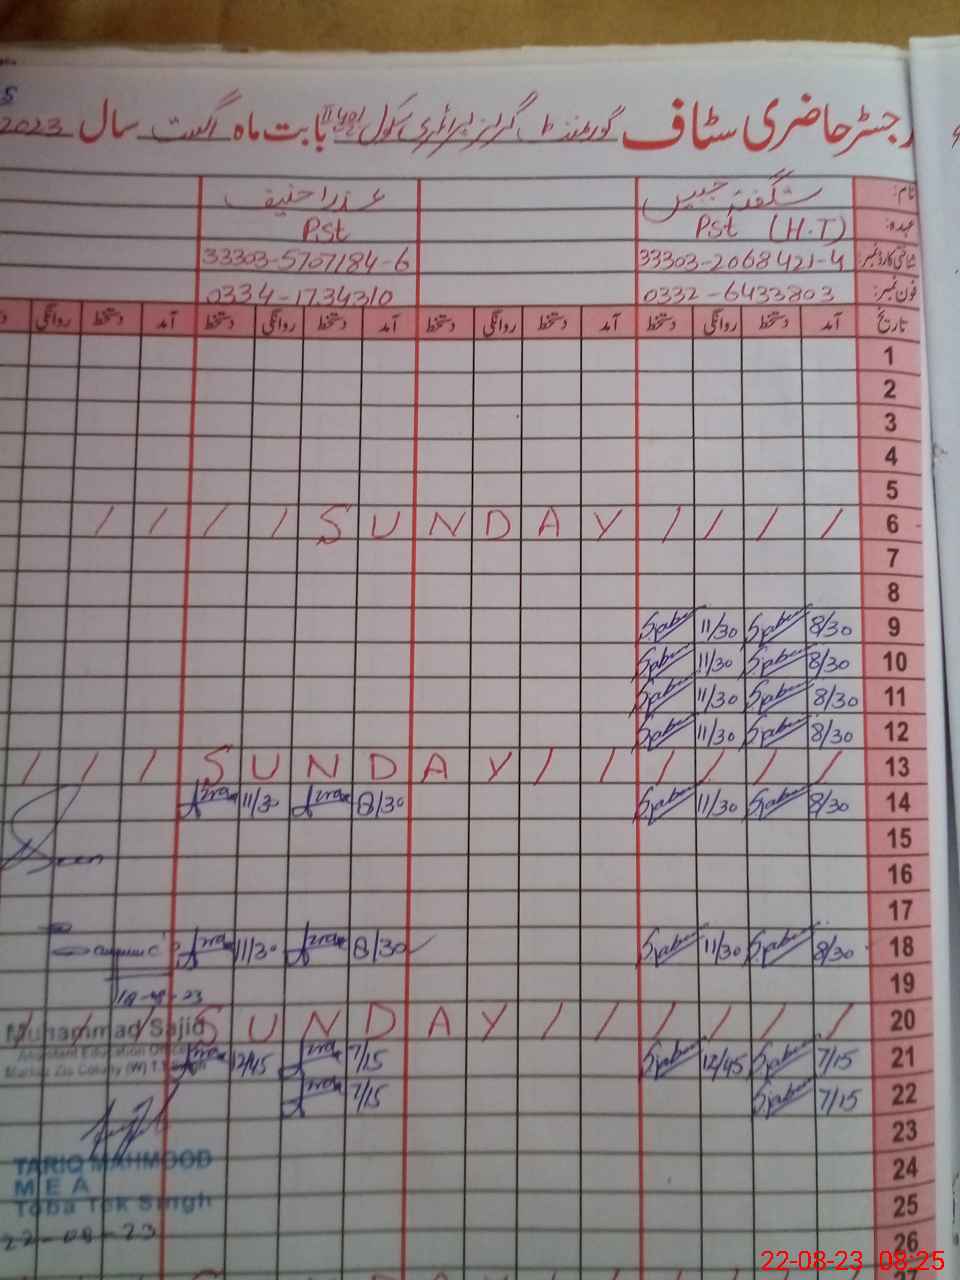 رجسٹر حاضری سٹاف گورنمنٹ گرلز پرائمری سکول بابت ماہ اگست سال 2023
نام: شگفتہ جبیں عذرا حنیف
عہدہ: Pst (H.T) PSt
شناختی کارڈ نمبر: 33303-2068421-4 33303-5707184-6
فون نمبر: 0332-6433803 0334-1734310
تاریخ آمد دستخط روانگی دستخط آمد دستخط روانگی دستخط آمد دستخط روانگی دستخط آمد دستخط روانگی
1
2
3
4
5
6 / / / / SUNDAY / / / /
7
8
9 8/30 11/30
10 8/30 11/30
11 8/30 11/30
12 8/30 11/30
13 / / / SUNDAY / / / / / /
14 8/30 11/30 8/30 11/30
15
16
17
18 8/30 11/30 8/30 11/30
19
20 / / / SUNDAY / / / / / /
Muhammad Sajid
21 7/15 12/45 7/15 12/45
22 7/15 7/15
23
TARIQ MAHMOOD
24
M E A
25
Toba Tek Singh
22-08-23
26
22-08-23 08:25